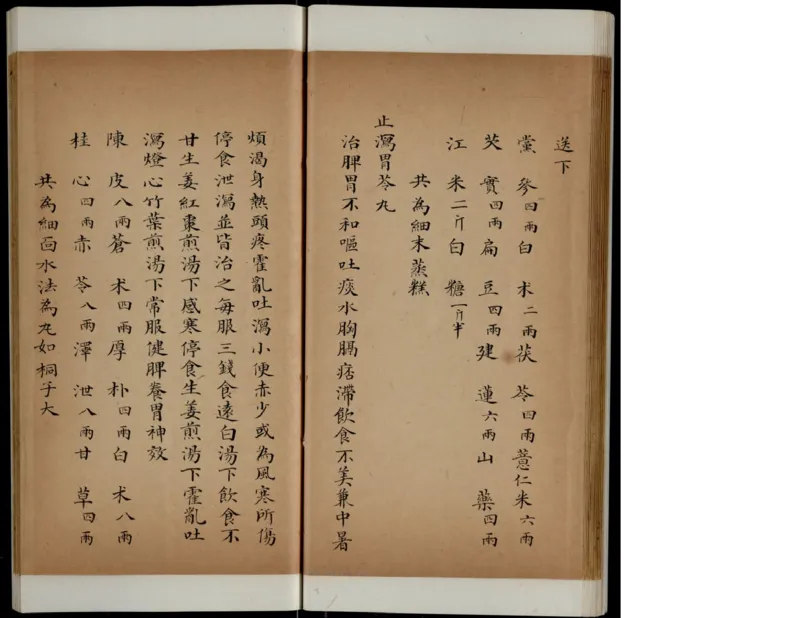 送下
黨參四兩白朮二兩茯苓四兩薏仁米六兩
芡實四兩扁豆四兩建蓮六兩山藥四兩
江米二斤白糖一斤半
共為細末蒸糕
止瀉胃苓丸
治脾胃不和嘔吐痰水胸膈痞滯飲食不美兼中暑
煩渴身熱頭疼霍亂吐瀉小便赤少或為風寒所傷
停食泄瀉並皆治之每服三錢食遠白湯下飲食不
甘生姜紅棗煎湯下感寒停食生姜煎湯下霍亂吐
瀉燈心竹葉煎湯下常服健脾養胃神效
陳皮八兩蒼朮四兩厚朴四兩白朮八兩
桂心四兩赤苓八兩澤泄八兩甘草四兩
共為細面水法為丸如桐子大